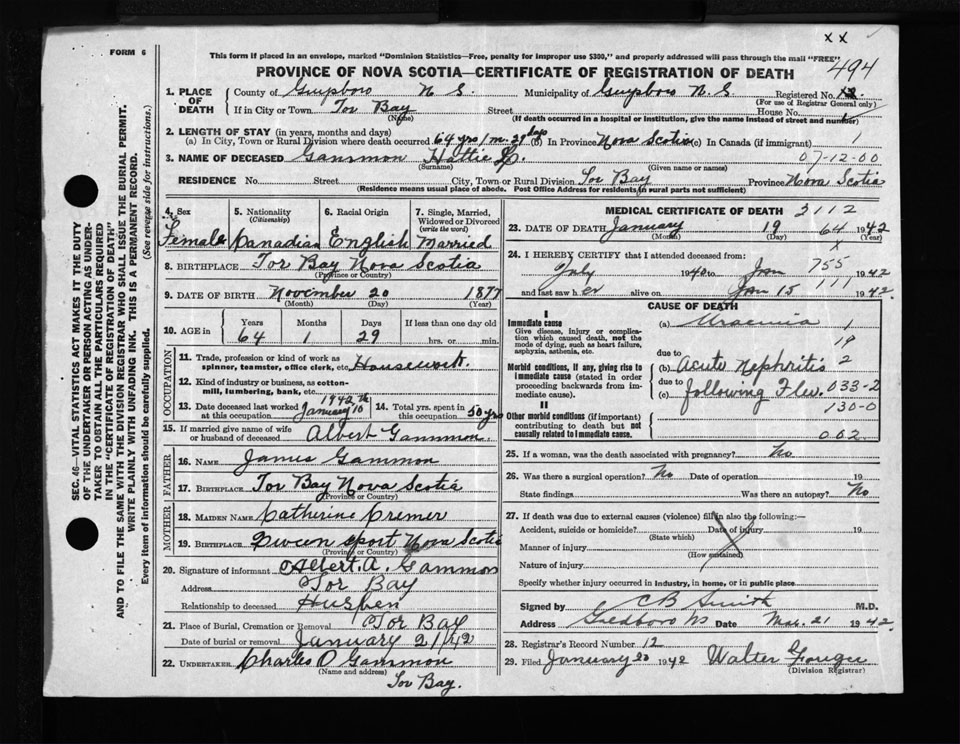 x x
FORM 6
This form if placed in an envelope, marked "Dominion Statistics—Free, penalty for improper use $300," and properly addressed will pass through the mail "FREE"
494
PROVINCE OF NOVA SCOTIA—CERTIFICATE OF REGISTRATION OF DEATH
1. PLACE OF DEATH County of Guysboro N S. Municipality of Guysboro N. S Registered No. 12.
(For use of Registrar General only)
If in City or Town Tor Bay Street House No.
(Name) (If death occurred in a hospital or institution, give the name instead of street and number)
2. LENGTH OF STAY (in years, months and days)
(a) In City, Town or Rural Division where death occurred 64 yrs 1 m. 29 days (b) In Province Nova Scotia (c) In Canada (if immigrant) 1
3. NAME OF DECEASED Gammon Hattie L. 07-12-00
(Surname) (Given name or names)
RESIDENCE No. Street City, Town or Rural Division Tor Bay Province Nova Scotia
(Residence means usual place of abode. Post Office Address for residents in rural parts not sufficient)
4. Sex 5. Nationality (Citizenship) 6. Racial Origin 7. Single, Married, Widowed or Divorced (write the word)
Female Canadian English Married
8. BIRTHPLACE Tor Bay Nova Scotia
(Province or Country)
9. DATE OF BIRTH November 20 1877
(Month) (Day) (Year)
10. AGE in Years Months Days If less than one day old
64 1 29 hrs. or min.
OCCUPATION
11. Trade, profession or kind of work as spinner, teamster, office clerk, etc. Housework.
12. Kind of industry or business, as cotton-mill, lumbering, bank, etc.
13. Date deceased last worked at this occupation 1942 January 10th 14. Total yrs. spent in this occupation 50 yrs
15. If married give name of wife or husband of deceased Albert Gammon.
FATHER
16. NAME James Gammon
17. BIRTHPLACE Tor Bay Nova Scotia
(Province or Country)
MOTHER
18. MAIDEN NAME Catherine Cremer
19. BIRTHPLACE Qween sport Nova Scotia
(Province or Country)
20. Signature of informant Albert. A. Gammon
Address Tor Bay
Relationship to deceased Husben
21. Place of Burial, Cremation or Removal Tor Bay
Date of burial or removal January 21/42
22. UNDERTAKER Charles O Gammon
(Name and address)
Tor Bay.
MEDICAL CERTIFICATE OF DEATH 3112
23. DATE OF DEATH January 19 64 1942
(Month) (Day) (Year)
24. I HEREBY CERTIFY that I attended deceased from: x
July 1940 to Jan 755 1942
and last saw her alive on Jan 15 111 1942.
CAUSE OF DEATH
I
Immediate cause
Give disease, injury or complication which caused death, not the mode of dying, such as heart failure, asphyxia, asthenia, etc.
(a) Uraemia 1
19
due to
Morbid conditions, if any, giving rise to immediate cause (stated in order proceeding backwards from immediate cause).
(b) Acute Nephritis 2
due to
(c) following Flu. 033-2
130-0
II
Other morbid conditions (if important) contributing to death but not causally related to immediate cause.
002
25. If a woman, was the death associated with pregnancy? No
26. Was there a surgical operation? No Date of operation 19
State findings Was there an autopsy? No
27. If death was due to external causes (violence) fill in also the following:—
Accident, suicide or homicide? Date of injury 19
(State which)
Manner of injury
(How sustained)
Nature of injury
Specify whether injury occurred in industry, in home, or in public place
Signed by C B Smith M.D.
Address Goldboro NS Date Mar. 21 1942.
28. Registrar's Record Number 12
29. Filed January 20 1942 Walter
(Division Registrar)
SEC. 46—VITAL STATISTICS ACT MAKES IT THE DUTY
OF THE UNDERTAKER OR PERSON ACTING AS UNDER-
TAKER TO OBTAIN ALL THE PARTICULARS REQUIRED
IN THE "CERTIFICATE OF REGISTRATION OF DEATH"
AND TO FILE THE SAME WITH THE DIVISION REGISTRAR WHO SHALL ISSUE THE BURIAL PERMIT.
WRITE PLAINLY WITH UNFADING INK. THIS IS A PERMANENT RECORD.
Every item of information should be carefully supplied. (See reverse side for instructions.)